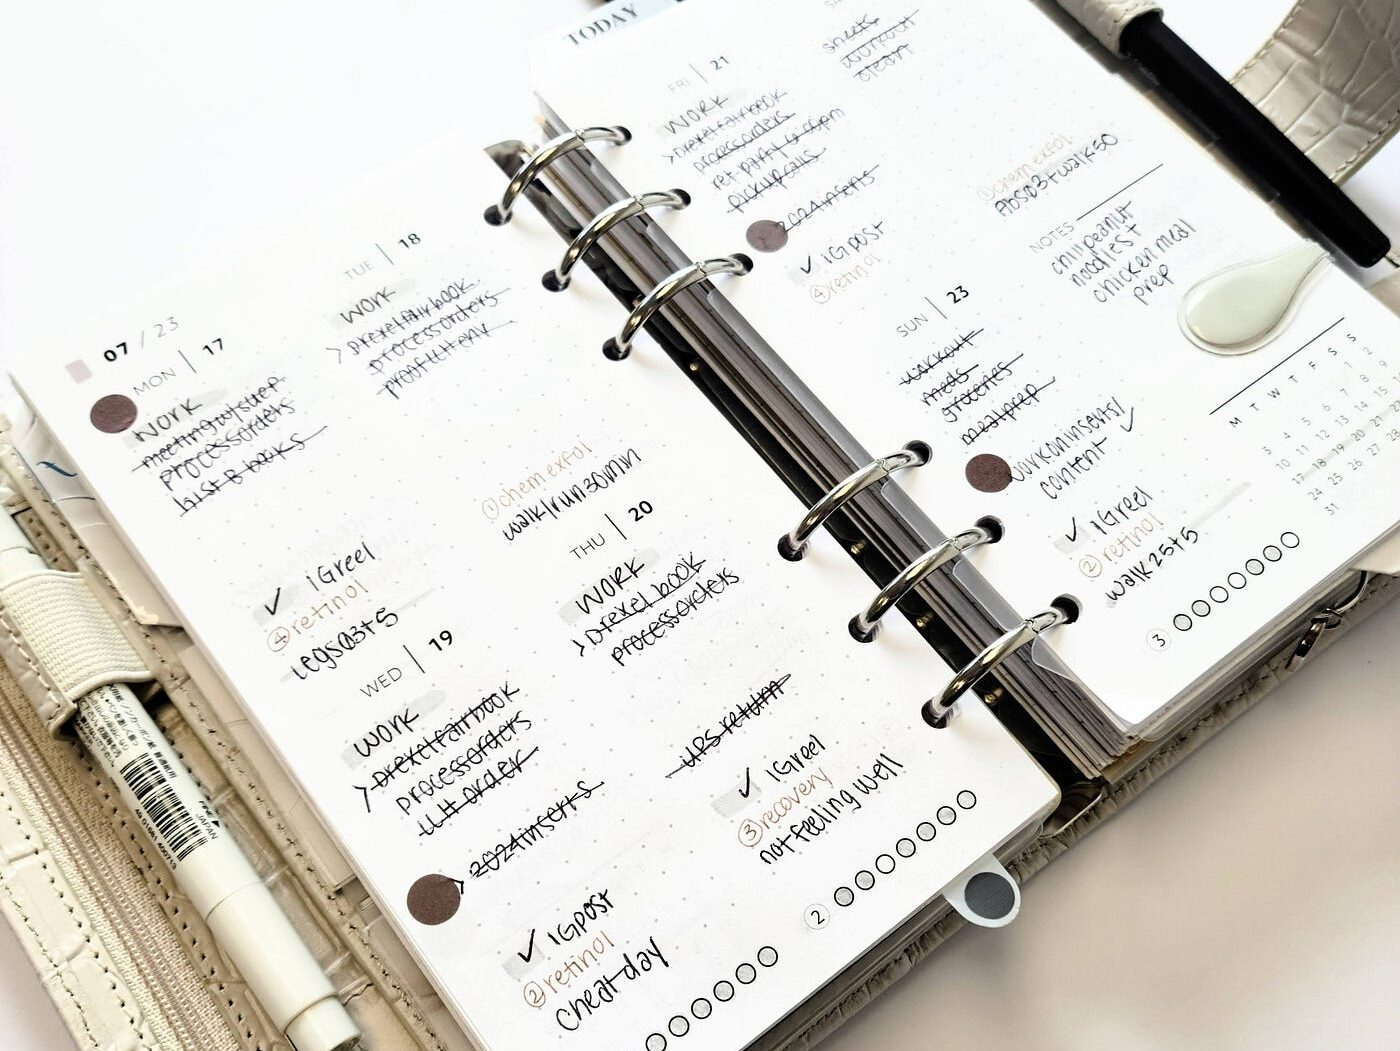 07 / 23
MON | 17
WORK
meeting w/ super
process orders
list B books
✓ IG reel
④ retinol
legs 03+5
TUE | 18
WORK
> Drexel fair book
process orders
proof LH env
① chem exfol
walk/run 30min
WED | 19
WORK
> Drexel fair book
process orders
LLH order
> 2024 inserts
✓ IG post
② retinol
cheat day
THU | 20
WORK
> Drexel book
process orders
UPS return
✓ IG reel
③ recovery
not feeling well
②
TODAY
FRI | 21
WORK
> Drexel fair book
process orders
ret. party 4:00pm
pickup calls
2024 inserts
✓ IG post
④ retinol
SA
sheets
workout
clean
① chem exfol
Abs 03+walk 50
SUN | 23
workout
meds
groceries
meal prep
work on inserts/
content ✓
✓ IG reel
② retinol
walk 25+5
NOTES
chili peanut
noodles +
chicken meal
prep
M T W T F S S
1 2
3 4 5 6 7 8 9
10 11 12 13 14 15
17 18 19 20 21 22
24 25 26 27 28
31
③
FINE
JAPAN